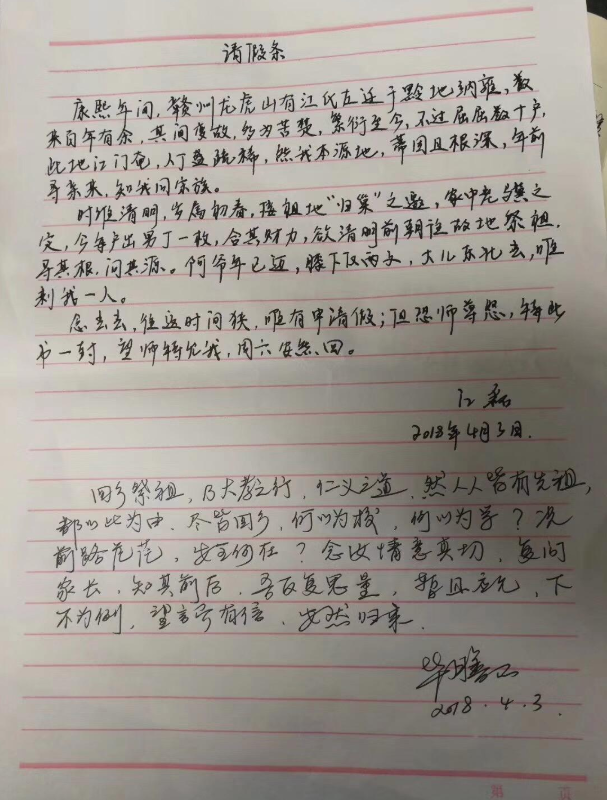 请假条
康熙年间，赣州龙虎山有江氏左迁于黔地纳雍，数
来百年有余，其间废故，多为苦楚，繁衍至今，不过屈屈数十户，
此地江门奄，人丁盖疏稀，然我本源地，蒂固且根深，年前
寻亲来，知我同家族。
时维清明，岁属初春，接祖地“归巢”之邀，家中老与冀之
定，今每户出男丁一枚，合其财力，欲清明前朝诣故地祭祖，
寻其根，问其源。阿爷年已迈，膝下仅两子，大儿东北去，唯
剩我一人。
念去去，往返时间狭，唯有申请假；但恐师尊怒，特此
书一封，望师特允我，周六安然回。
江磊
2018年4月3日.
回乡祭祖，乃大孝之行，仁义之道，然人人皆有先祖，
都以此为由，尽皆回乡，何以为校，何以为学？况
前路茫茫，安全何在？念汝情意真切，复问
家长，知其前后，吾反复思量，暂且应允，下
不为例，望言守有信，安然归来.
2018.4.3.
第 页